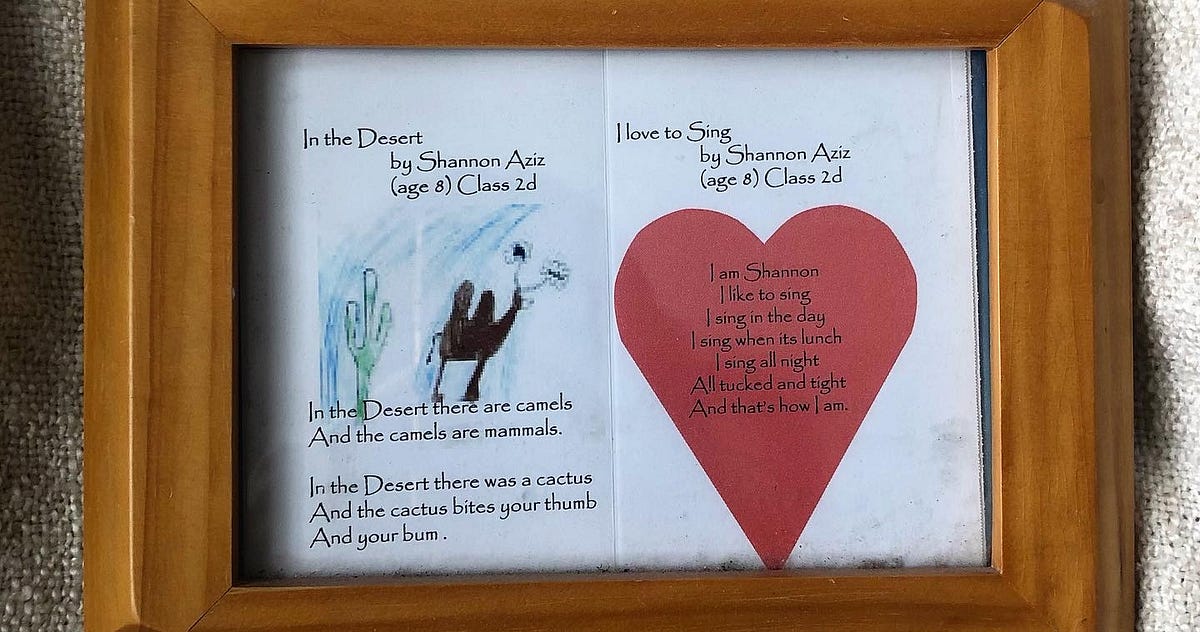 In the Desert
by Shannon Aziz
(age 8) Class 2d
In the Desert there are camels
And the camels are mammals.
In the Desert there was a cactus
And the cactus bites your thumb
And your bum .
I love to Sing
by Shannon Aziz
(age 8) Class 2d
I am Shannon
I like to sing
I sing in the day
I sing when its lunch
I sing all night
All tucked and tight
And that's how I am.